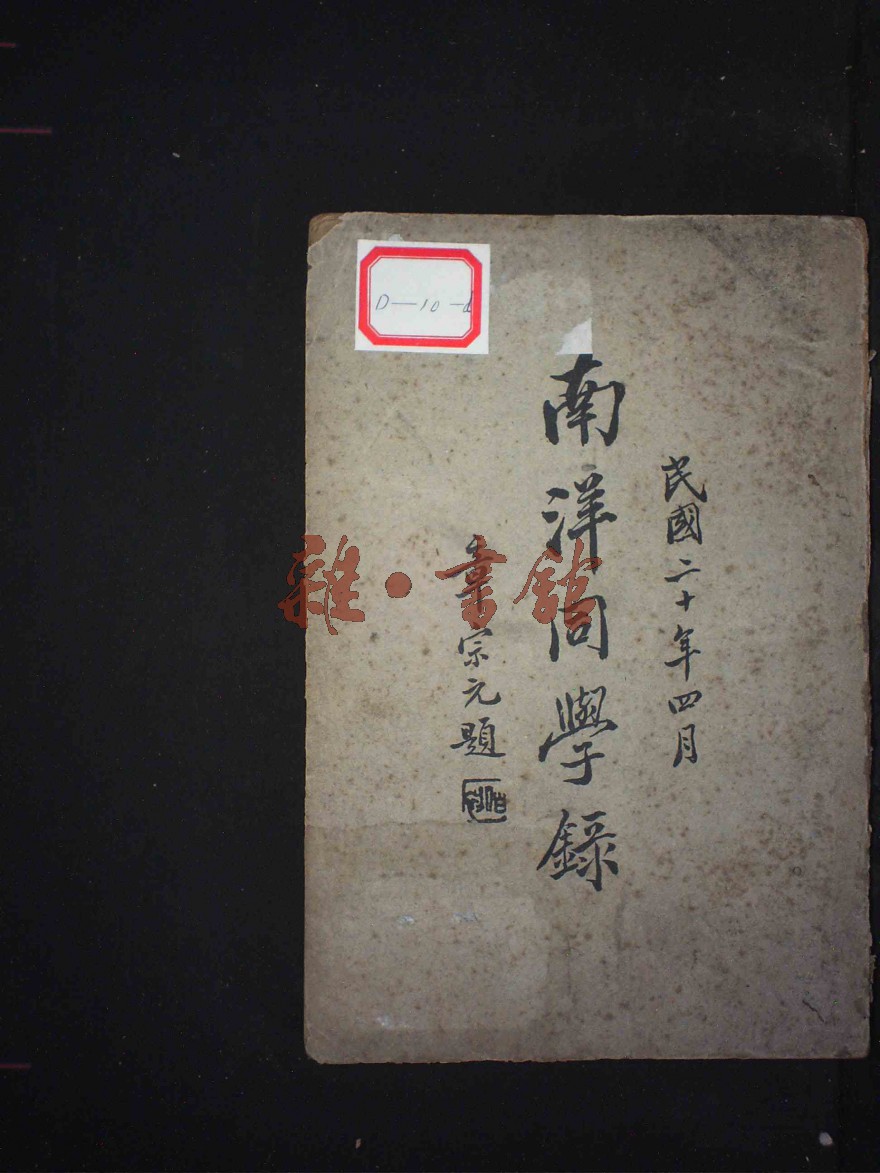 民國二十年四月
南洋同學錄
章宗元題
D—10—d
雜·書館